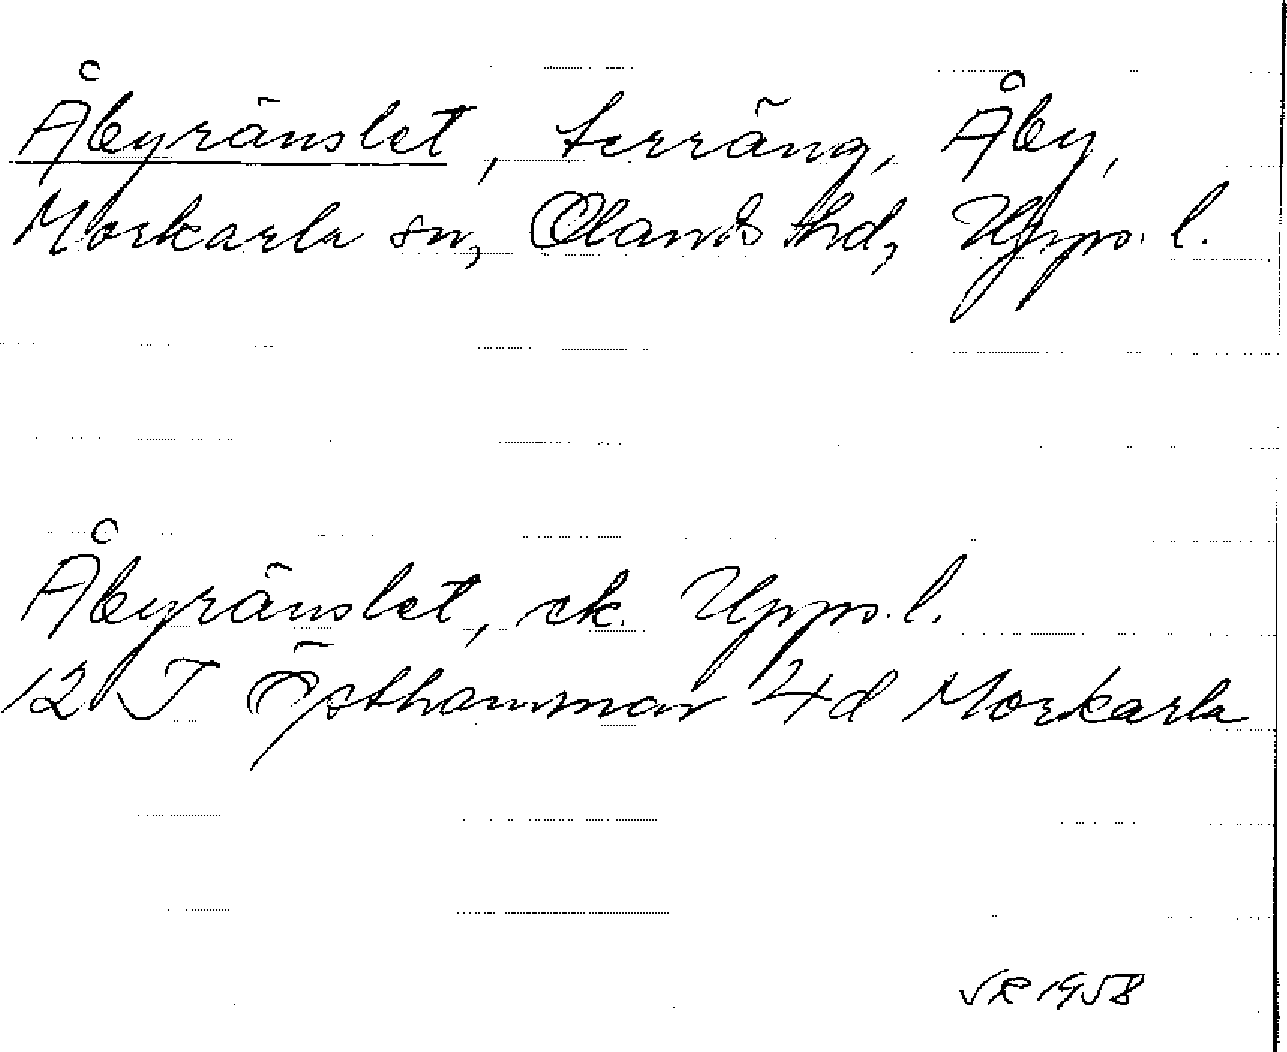 Åbyränslet, terräng, Åby,
Morkarla sn, Olands hd, Upps. l.
Åbyränslet, ek. Upps. l.
12 I Östhammar 4d Morkarla
SR 1958